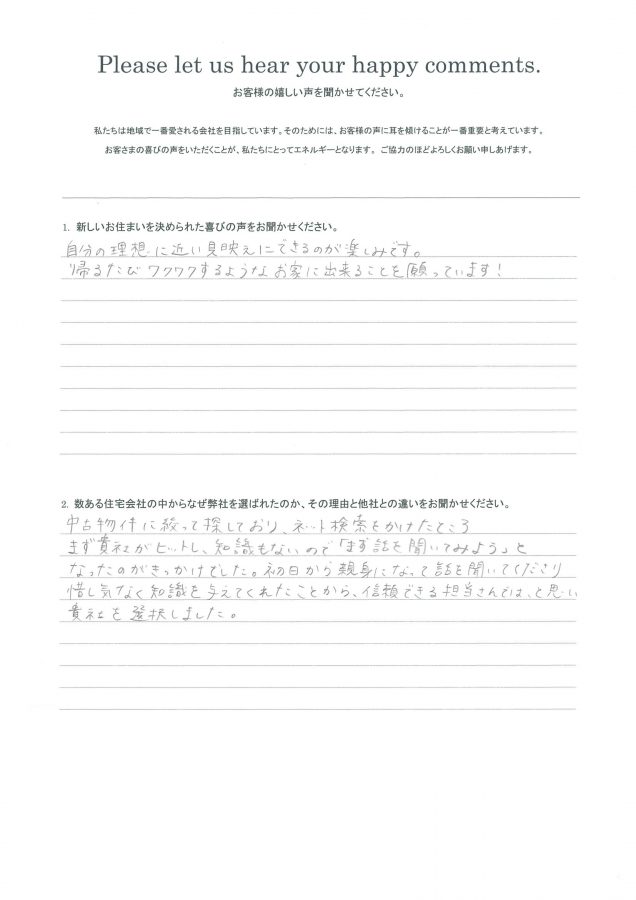 Please let us hear your happy comments.
お客様の嬉しい声を聞かせてください。
私たちは地域で一番愛される会社を目指しています。そのためには、お客様の声に耳を傾けることが一番重要と考えています。
お客さまの喜びの声をいただくことが、私たちにとってエネルギーとなります。 ご協力のほどよろしくお願い申しあげます。
1. 新しいお住まいを決められた喜びの声をお聞かせください。
自分の理想に近い見映えにできるのが楽しみです。
帰るたびワクワクするようなお家に出来ることを願っています!
2. 数ある住宅会社の中からなぜ弊社を選ばれたのか、その理由と他社との違いをお聞かせください。
中古物件に絞って探しており、ネット検索をかけたところ
まず貴社がヒットし、知識もないので「まず話を聞いてみよう」と
なったのがきっかけでした。初日から親身になって話を聞いてくださり
惜し気なく知識を与えてくれたことから、信頼できる担当さんでは、と思い
貴社を選択しました。